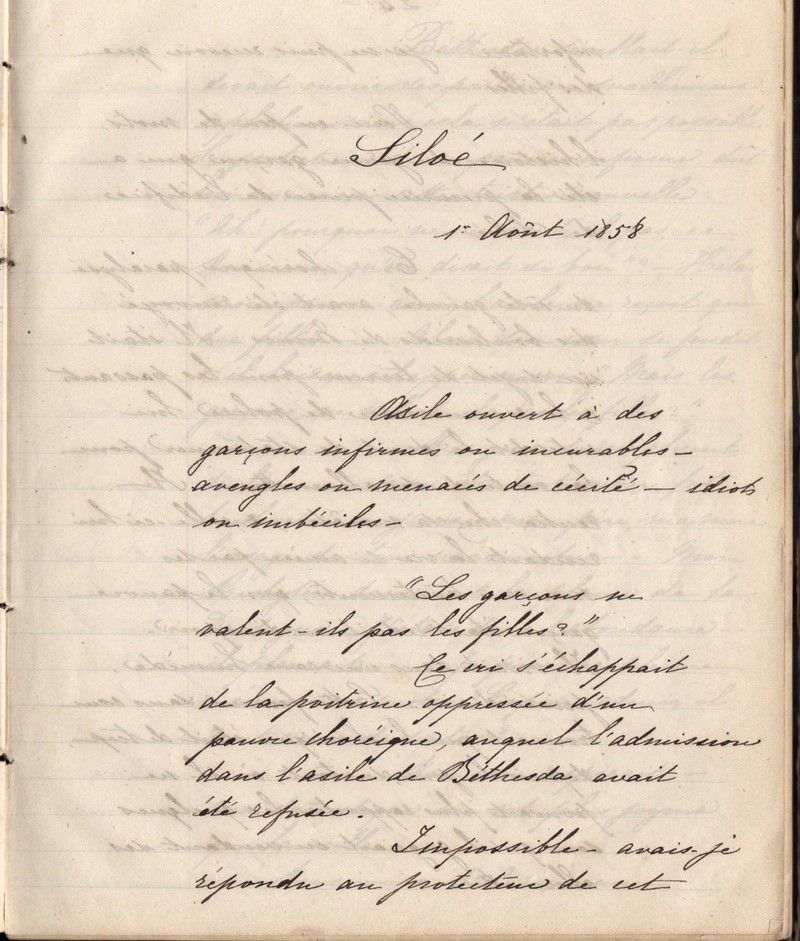 Siloé
1er Août 1858
Asile ouvert à des
garçons infirmes ou incurables –
aveugles ou menacés de cécité – idiots
ou imbéciles –
"Les garçons ne
valent-ils pas les filles?"
Ce cri s'échappait
de la poitrine oppressée d'un
pauvre choréique, auquel l'admission
dans l'asile de Béthesda avait
été refusée.
Impossible – avais-je
répondu au protecteur de cet